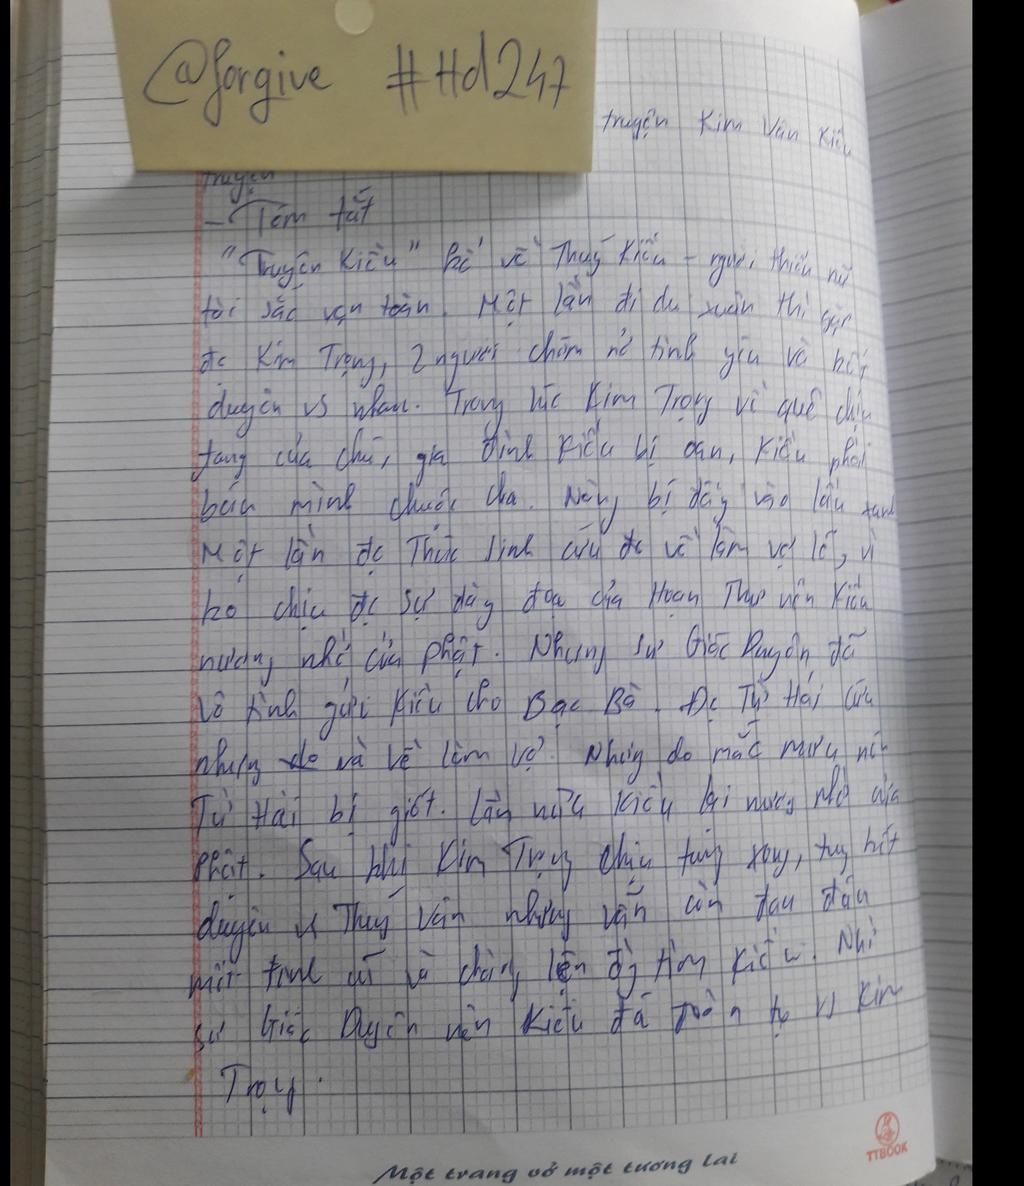 @forgive #Hd247
truyện Kim Vân Kiều
truyện
- Tóm tắt
"Truyện Kiều" kể về Thuý Kiều - người thiếu nữ
tài sắc vẹn toàn. Một lần đi du xuân thì gặp
đc Kim Trọng, 2 người chớm nở tình yêu và kết
duyên vs nhau. Trong lúc Kim Trọng về quê chịu
tang của chú, gia đình Kiều bị oan, Kiều phải
bán mình chuộc cha. Nàng bị đẩy vào lầu xanh
Một lần đc Thúc Sinh cứu đc về làm vợ lẽ, vì
ko chịu đc sự đày đoạ của Hoạn Thư nên Kiều
nương nhờ cửa phật. Nhưng sư Giác Duyên đã
vô tình gửi Kiều cho Bạc Bà. Đc Từ Hải cứu
nhưng do và về làm vợ. Nhưng do mắc mưu nên
Từ Hải bị giết. Lần nữa Kiều lại nương nhờ cửa
Phật. Sau khi Kim Trọng chịu tang xong, tuy kết
duyên vs Thuý Vân nhưng vẫn còn đau đáu
mối tình cũ và chàng đi tìm Kiều. Nhờ
sư Giác Duyên nên Kiều đã đoàn tụ vs Kim
Trọng.
Một trang vở một tương lai
TTBOOK